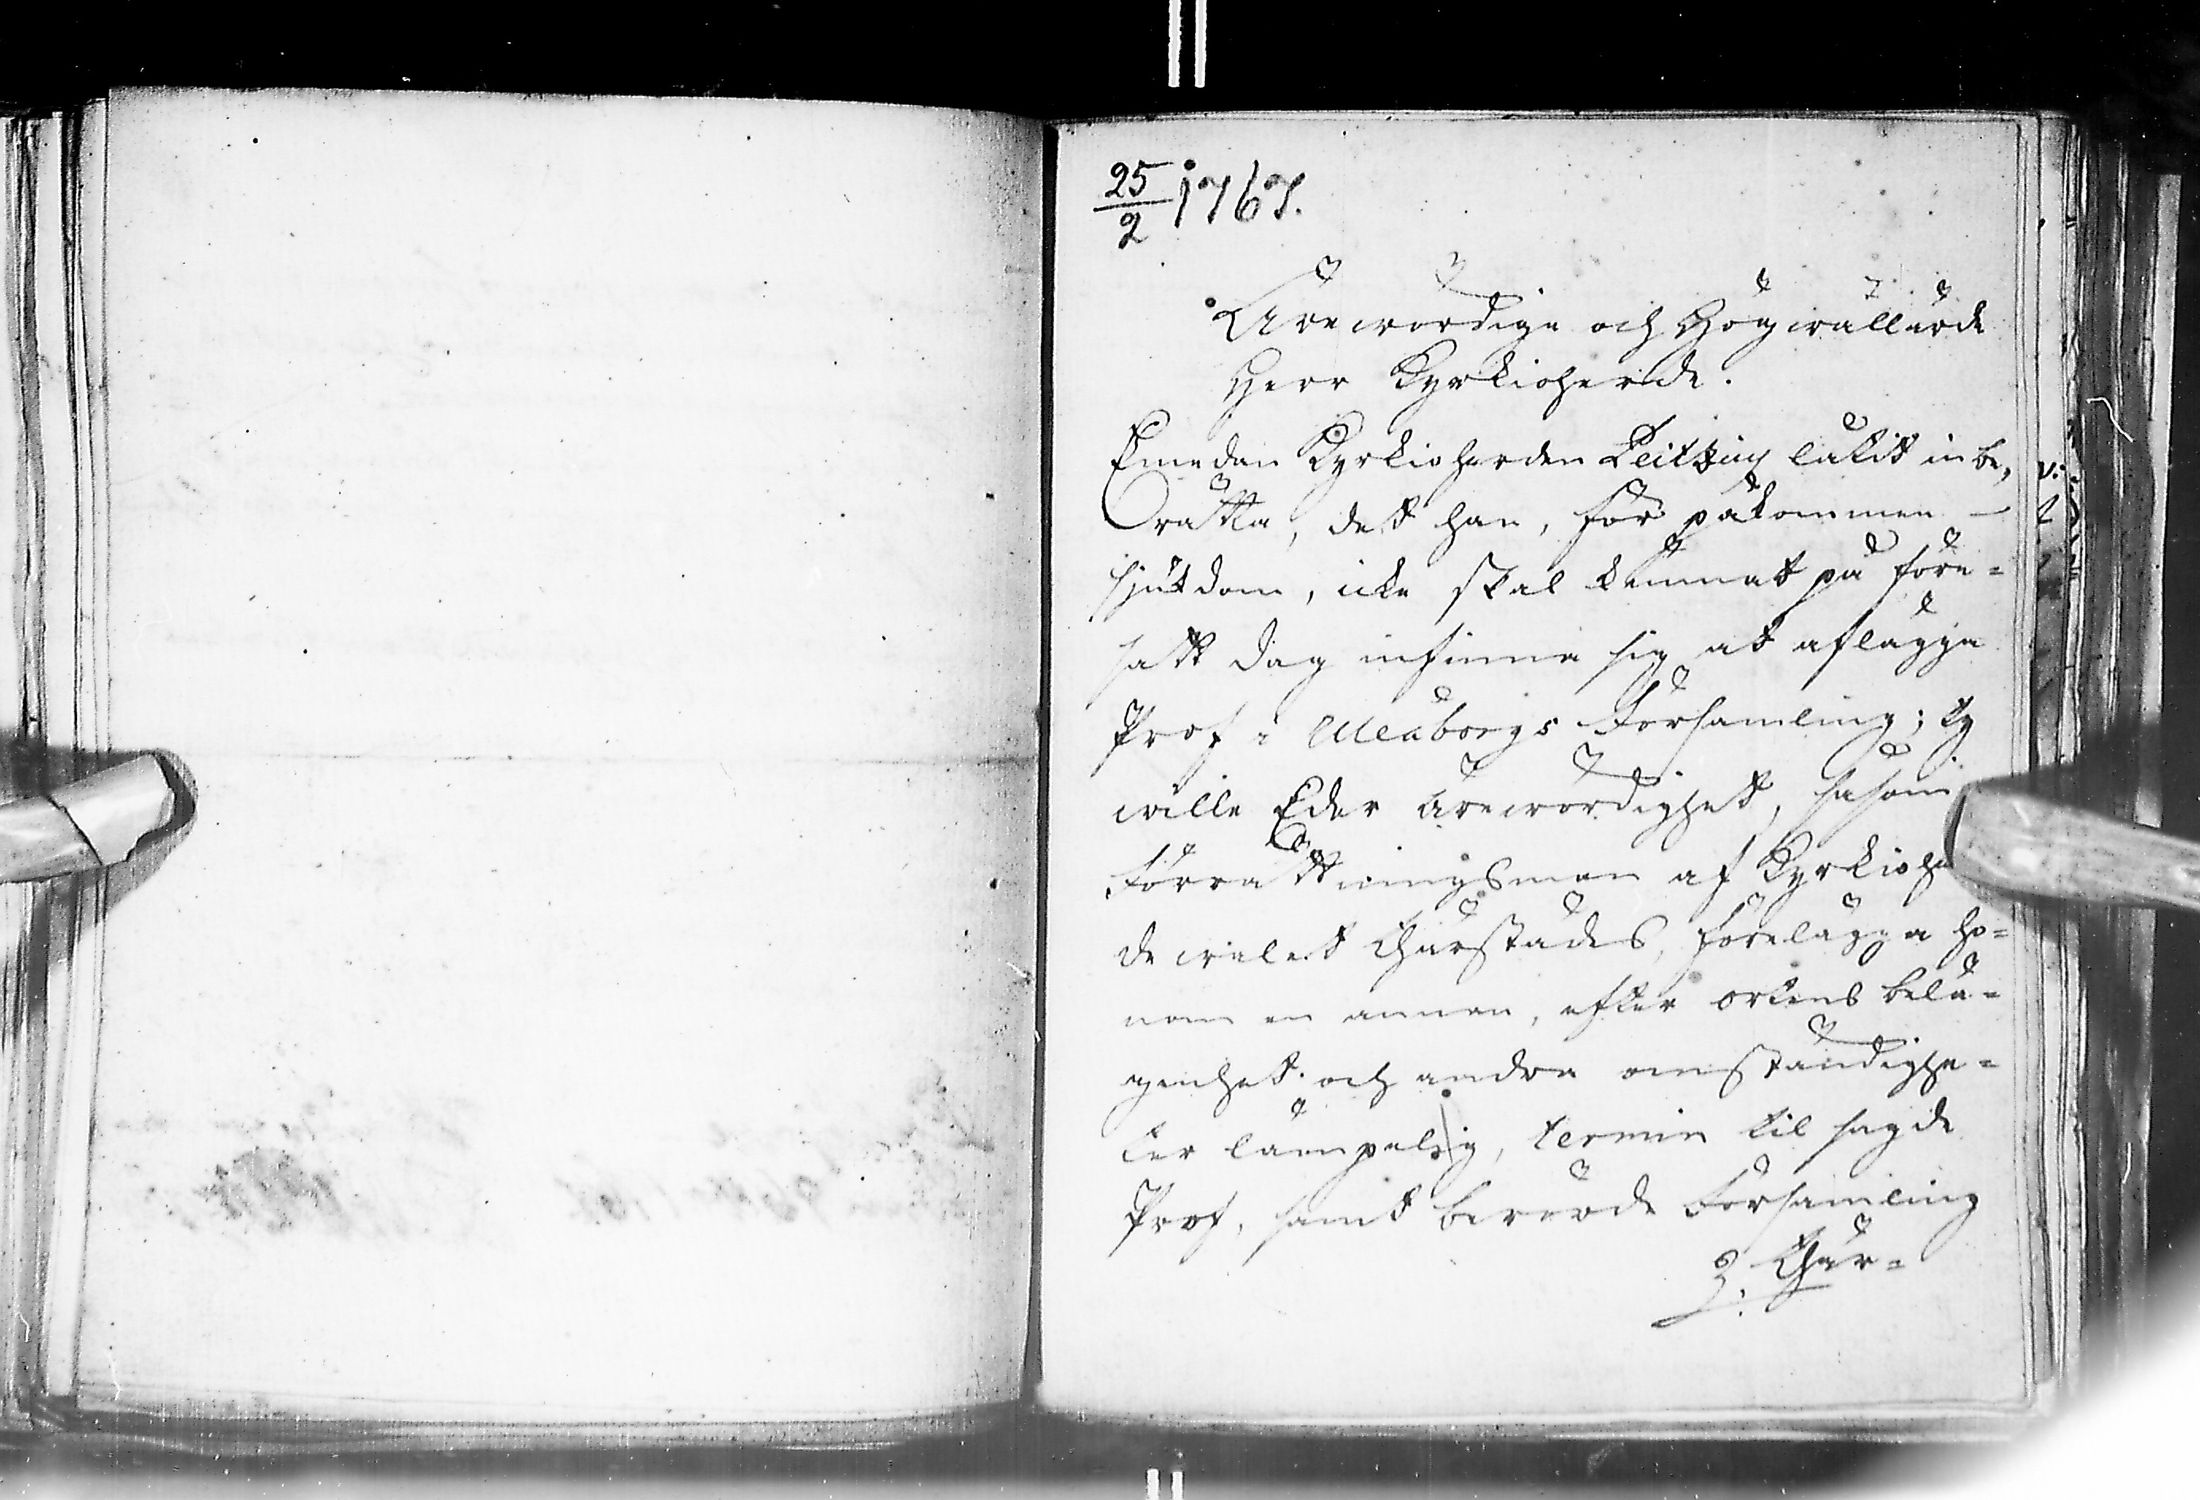 25/2 1767.
Ärewördige och Högwällärde
Herr Kyrkioherde.
Emedan Kyrkioherden Peitzius låtit inbe,
rätta, det han, för påkommen
sjukdom, icke skal kunnat på före=
satt dag infinna sig at aflägga
Prof i Uleåborgs Församling; ty
wille Eder Ärewördighet, såsom
Förrättningsman af Kyrkiohe
de walet därstädes, förelägga ho=
nom en annan, efter ortens belä=
genhet och andra omständighe=
ter lämpelig, termin til sagde
Prof, samt berörde Församling
där=